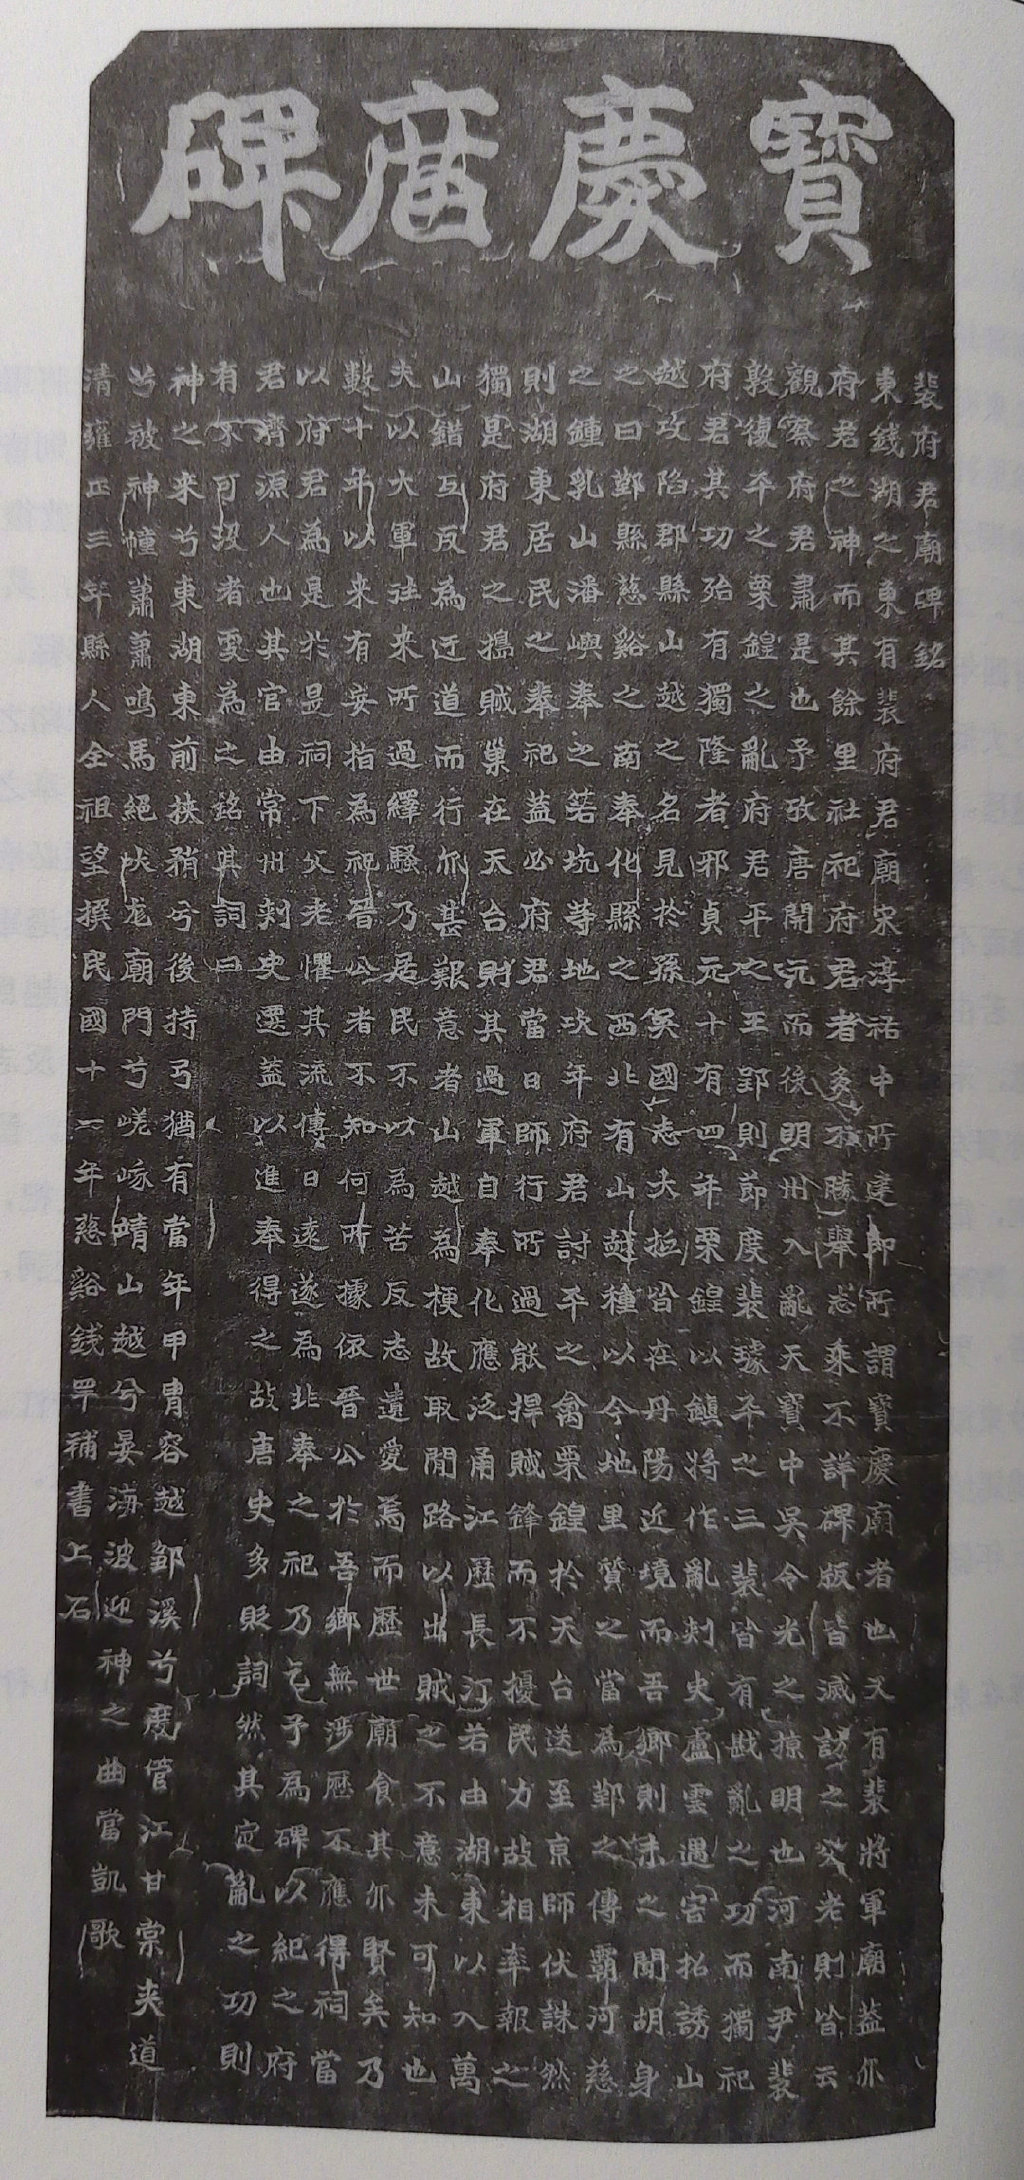 寶慶庿碑
裴府君廟碑銘
東錢湖之東有裴府君廟宋淳祐中所建即所謂寶慶廟者也又有裴將軍廟蓋亦
府君之神而其餘里社祀府君者多不勝舉志乘不詳碑版皆滅訪之父老則皆云
觀察府君肅是也予攷唐開元而後明州入亂天寶中吳令光之掠明也河南尹裴
敦復平之栗鍠之亂府君平之王郢則節度裴璩平之三裴皆有戡亂之功而獨祀
府君其功殆有獨隆者邪貞元十有四年栗鍠以鎮將作亂刺史盧雲遇害招誘山
越攻陷郡縣山越之名見於孫吳國志大抵皆在丹陽近境而吾鄉則未之聞胡身
之曰鄞縣慈谿之南奉化縣之西北有山越種以今地里質之當為鄞之傳霸河慈
之鍾乳山潘嶼奉之箬坑等地次年府君討平之禽栗鍠於天台送至京師伏誅然
則湖東居民之奉祀蓋必府君當日師行所過能捍賊鋒而不擾民力故相率報之
獨是府君之搗賊巢在天台則其過軍自奉化應泛甬江歷長汀若由湖東以入萬
山錯互反為迂道而行亦甚艱意者山越為梗故取間路以出賊之不意未可知也
夫以大軍往來所過繹騷乃居民不以為苦反志遺愛焉而歷世廟食其亦賢矣乃
數十年以来有妄指為祀晉公者不知何所據依晉公於吾鄉無涉歷不應得祠當
以府君為是於是祠下父老懼其流傳日遠遂為非奉之祀乃乞予為碑以紀之府
君濟源人也其官由常州刺史遷蓋以進奉得之故唐史多貶詞然其定亂之功則
有不可沒者爰為之銘其詞曰
神之来兮東湖東前挾矟兮後持弓猶有當年甲冑容越鄞溪兮度管江甘棠夾道
兮被神幢蕭蕭鳴馬絕吠尨廟門兮嵯峨晴山越兮晏海波迎神之曲當凱歌
清雍正三年縣人全祖望撰民國十一年慈谿錢罕補書上石